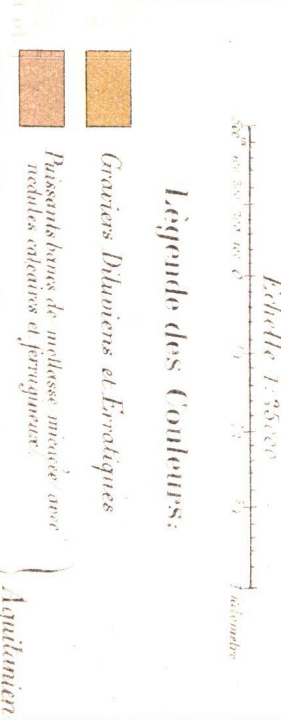 Echelle 1:25000
500 m 0 1 Kilomètre
Légende des Couleurs:
Graviers Diluviens et Erratiques
Puissants bancs de mollasse micacée avec
nodules calcaires et ferrugineux
Aquitanien